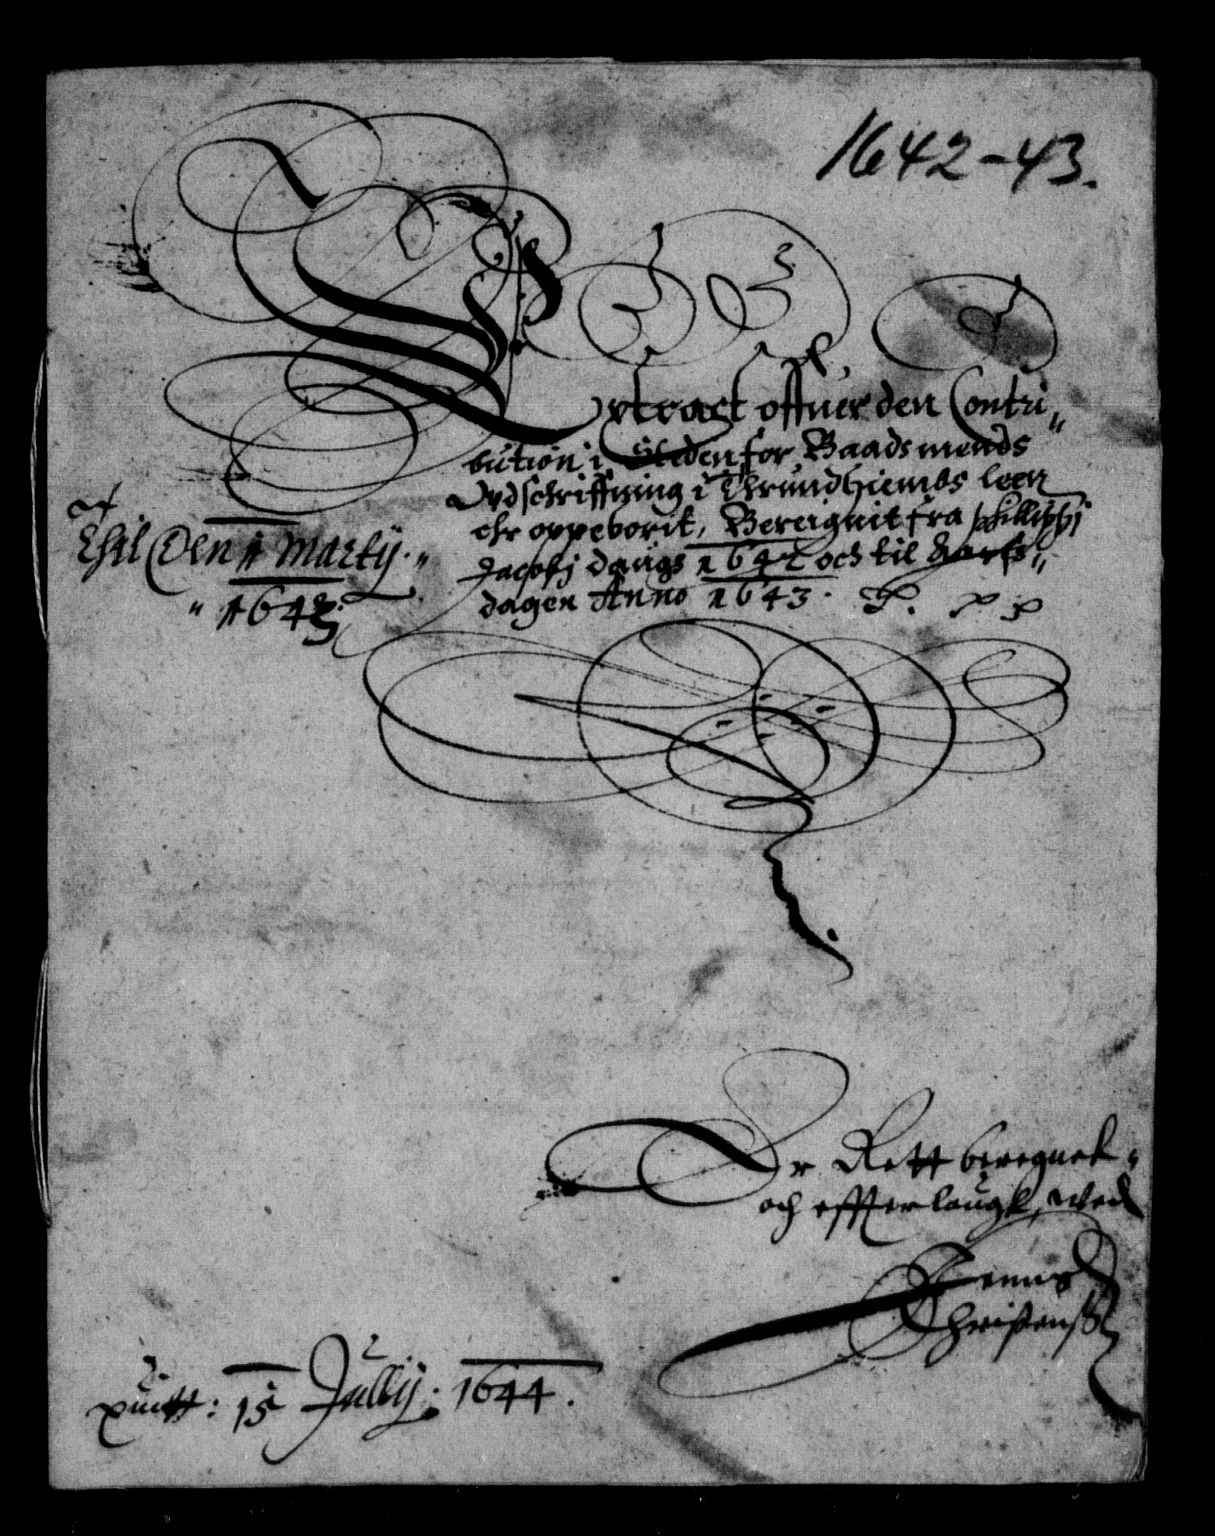 1642-43.
Extract offuer den Contri„
bution i Steden for Baadsmends
Vdschriffning i Thrundhiembs leen
ehr oppeborit, Beregnit fra phillippi
Jacobj daugs 1642 och til
dagen Anno 1643.
Thil Den 1 Martij. „
„ 1643.
Er Rett beregnet
och effterlaugt, wed
Jenns
Christenß
quitt: 15 Jullij. 1644.